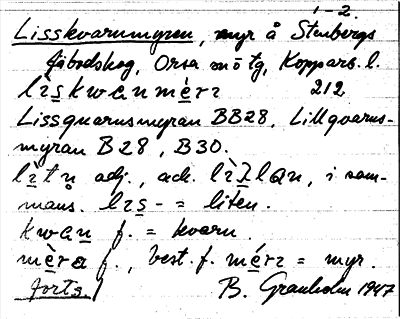 1-2.
Lisskvarnmyren, myr å Stenbergs
fäbodskog, Orsa sn o tg, Kopparb. l.
lìskwanmèrɪ 212
Lissquarnsmyran BB28, Lillqvarns-
myran B28, B30.
lìtn adj., ack. , i sam-
mans. lɪs- = liten.
kwan f. = kvarn.
mèra f., best. f. mérɪ = myr.
forts. / B. Granholm 1947